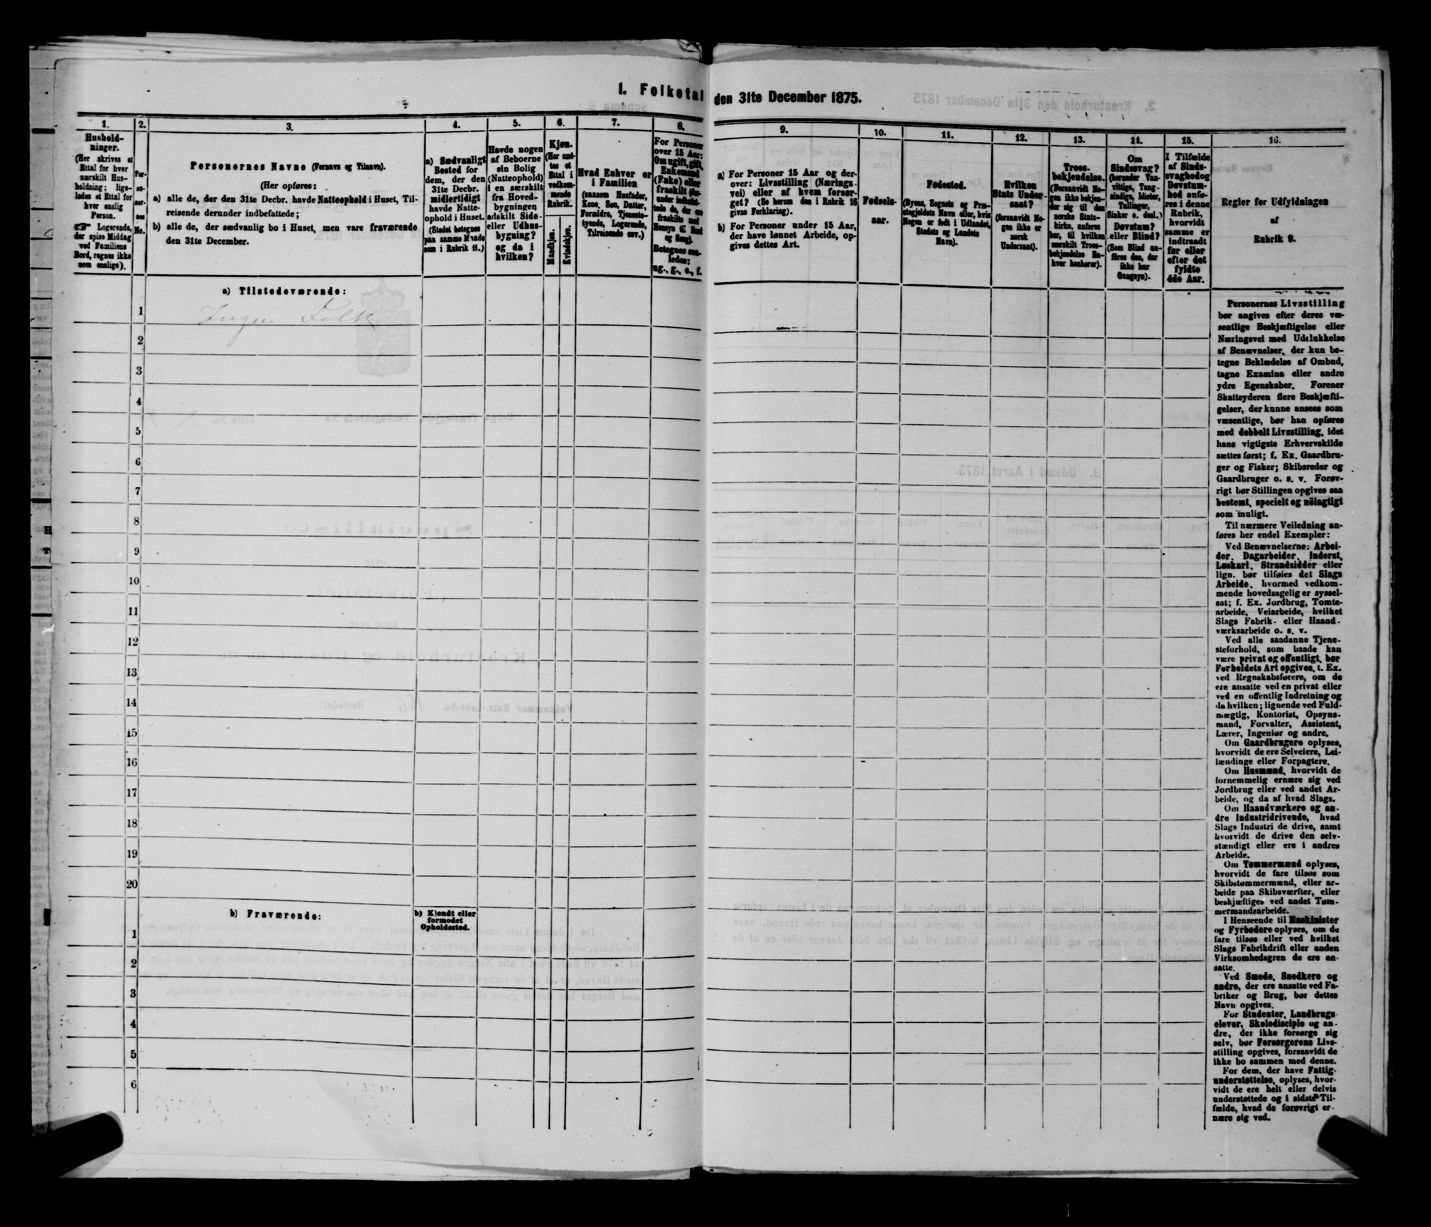 1. Folketal den 31te December 1875.
1.
Hushold-
ninger.
(Her skrives et
Ettal for hver
særskilt Hus-
holdning; lige-
ledes et Ettal for
hver enslig
Person.
☞ Logerende,
der spise Middag
ved Familiens
Bord, regnes ikke
som enslige).
2.
Per-
so-
ner-
nes
No.
3.
Personernes Navne (Fornavn og Tilnavn).
(Her opføres:
a) alle de, der den 31te Decbr. havde Natteophold i Huset, Til-
reisende derunder indbefattede;
b) alle de, der sædvanlig bo i Huset, men vare fraværende
den 31te December.
4.
a) Sædvanligt
Bosted for
dem, der den
31te Decbr.
midlertidigt
havde Natte-
ophold i Huset.
(Stedet betegnes
paa samme Maade
som i Rubrik 11.)
5.
Havde nogen
af Beboerne
sin Bolig
(Natteophold)
i en særskilt
fra Hoved-
bygningen
adskilt Side-
eller Udhus-
bygning?
og da i
hvilken?
6.
Kjøn.
(Her sæt-
tes et
Ettal i
vedkom-
mende
Rubrik.
Mandkjøn.
Kvindekjøn.
7.
Hvad Enhver er
i Familien
(saasom Husfader,
Kone, Søn, Datter,
Forældre, Tjeneste-
tyende, Logerende,
Tilreisende osv.)
8.
For Personer
over 15 Aar:
Om ugift, gift,
Enkemand
(Enke) eller
fraskilt
Betegnes saa-
ledes:
ug., g., e., f.
9.
a) For Personer 15 Aar og der-
over: Livsstilling (Nærings-
vei) eller af hvem forsør-
get? (Se herom den i Rubrik 16
givne Forklaring).
b) For Personer under 15 Aar,
der have lønnet Arbeide, op-
gives dettes Art.
10.
Fødsels-
aar.
11.
Fødested.
(Byens, Sognets og Præ-
stegjeldets Navn eller, hvis
Nogen er født i Udlandet,
Stedets og Landets
Navn).
12.
Hvilken
Stats Under-
saat?
(forsaavidt No-
gen ikke er
norsk
Undersaat).
13.
Troes-
bekjendelse.
(Forsaavidt No-
gen ikke bekjen-
der sig til den
norske Stats-
kirke, anføres
her, til hvilken
særskilt Troes-
bekjendelse En-
hver henhører).
14.
Om
Sindssvag?
(herunder Van-
vittige, Tung-
sindige, Idioter,
Tullinger,
Sinker o. desl.)
Døvstum?
eller Blind?
(Som Blind an-
føres den, der
ikke har
Gangsyn).
15.
I Tilfælde
af Sinds-
svaghed og
Døvstum-
hed anfø-
res i denne
Rubrik,
hvorvidt
samme er
indtraadt
før eller
efter det
fyldte
4de Aar.
16.
Regler for Udfyldningen
af
Rubrik 9.
a) Tilstedeværende:
1 Ingen Folk
2
3
4
5
6
7
8
9
10
11
12
13
14
15
16
17
18
19
20
b) Fraværende:
b) Kjendt eller
formodet
Opholdssted.
1
2
3
4
5
6
Personernes Livsstilling
bør angives efter deres væ-
sentlige Beskjæftigelse eller
Næringsvei med Udelukkelse
af Benævnelser, der kun be-
tegne Beklædelse af Ombud,
tagne Examina eller andre
ydre Egenskaber. Forener
Skatteyderen flere Beskjæfti-
gelser, der kunne ansees som
væsentlige, bør han opføres
med dobbelt Livsstilling, idet
hans vigtigste Erhvervskilde
sættes først; f. Ex. Gaardbru-
ger og Fisker; Skibsreder og
Gaardbruger o. s. v. Forøv-
rigt bør Stillingen opgives saa
bestemt, specielt og nöiagtigt
som muligt.
Til nærmere Veiledning an-
føres her endel Exempler:
Ved Benævnelserne: Arbei-
der, Dagarbeider, Inderst,
Løskarl, Strandsidder eller
lign. bør tilføies det Slags
Arbeide, hvormed vedkom-
mende hovedsagelig er syssel-
sat; f. Ex. Jordbrug, Tomte-
arbeide, Veiarbeide, hvilket
Slags Fabrik- eller Haand-
værksarbeide o. s. v.
Ved alle saadanne Tjene-
steforhold, som baade kan
være privat og offentligt, bør
Forholdets Art opgives, t. Ex.
ved Regnskabsførere, om de
ere ansatte ved en privat eller
ved en offentlig Indretning og
da hvilken; lignende ved Fuld-
mægtig, Kontorist, Opsyns-
mand, Forvalter, Assistent,
Lærer, Ingeniør og andre.
Om Gaardbrugere oplyses,
hvorvidt de ere Selveiere, Lei-
lændinge eller Forpagtere.
Om Husmænd, hvorvidt de
fornemmelig ernære sig ved
Jordbrug eller ved andet Ar-
beide, og da af hvad Slags.
Om Haandværkere og an-
dre Industridrivende, hvad
Slags Industri de drive, samt
hvorvidt de drive den selv-
stændigt eller ere i andres
Arbeide.
Om Tømmermænd oplyses,
hvorvidt de fare tilsøs som
Skibstømmermænd, eller ar-
beide paa Skibsværfter, eller
beskjæftiges ved andet Tøm-
mermandsarbeide.
I Henseende til Maskinister
og Fyrbødere oplyses, om de
fare tilsøs eller ved hvilket
Slags Fabrikdrift eller anden
Virksomhedsgren de ere an-
satte.
Ved Smede, Snedkere og
andre, der ere ansatte ved Fa-
briker og Brug, bør dettes
Navn opgives.
For Studenter, Landbrugs-
elever, Skoledisciple og an-
dre, der ikke forsørge sig
selv, bør Forsørgerens Livs-
stilling opgives, forsaavidt de
ikke bo sammen med denne.
For dem, der have Fattig-
understøttelse, oplyses, hvor-
vidt de ere helt eller delvis
understøttede og i sidste Til-
fælde, hvad de forøvrigt er-
nære sig ved.